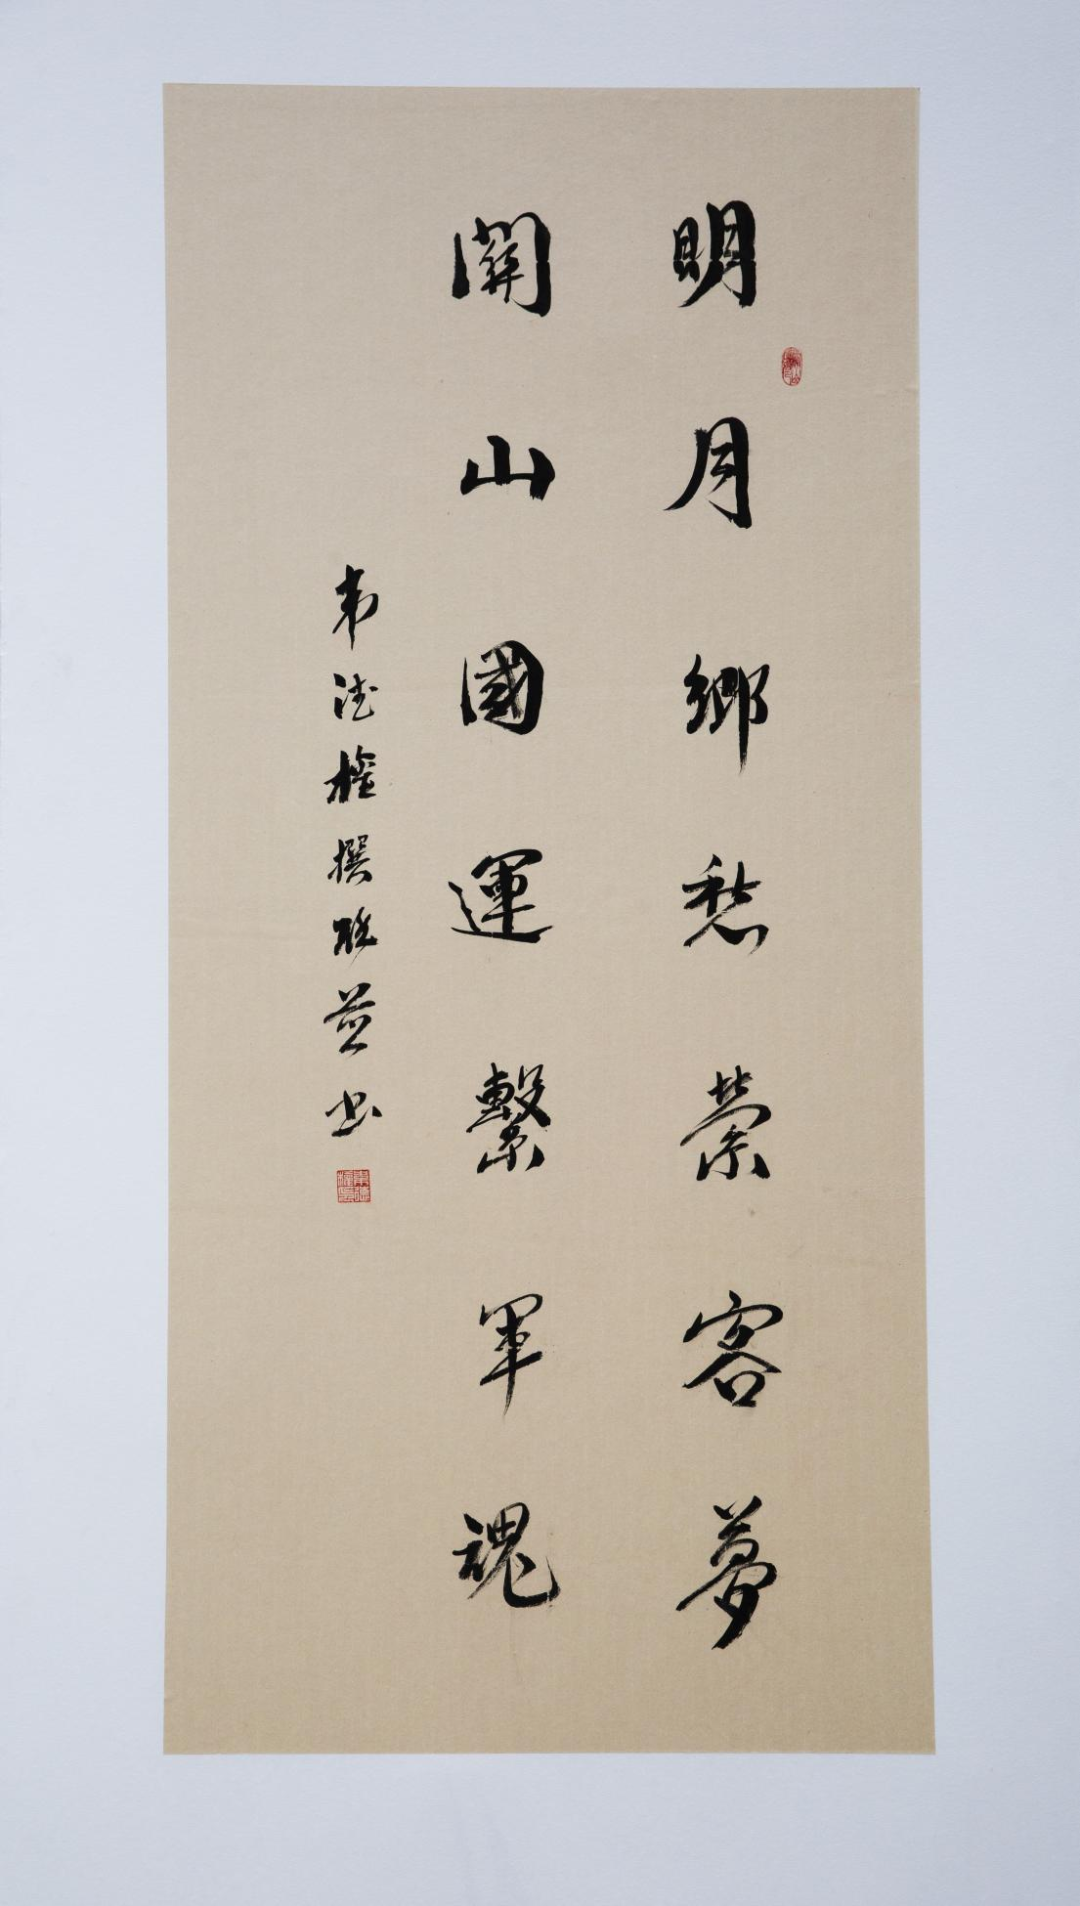 明月鄉愁縈客夢
關山國運繫軍魂
韦德栓撰联並书